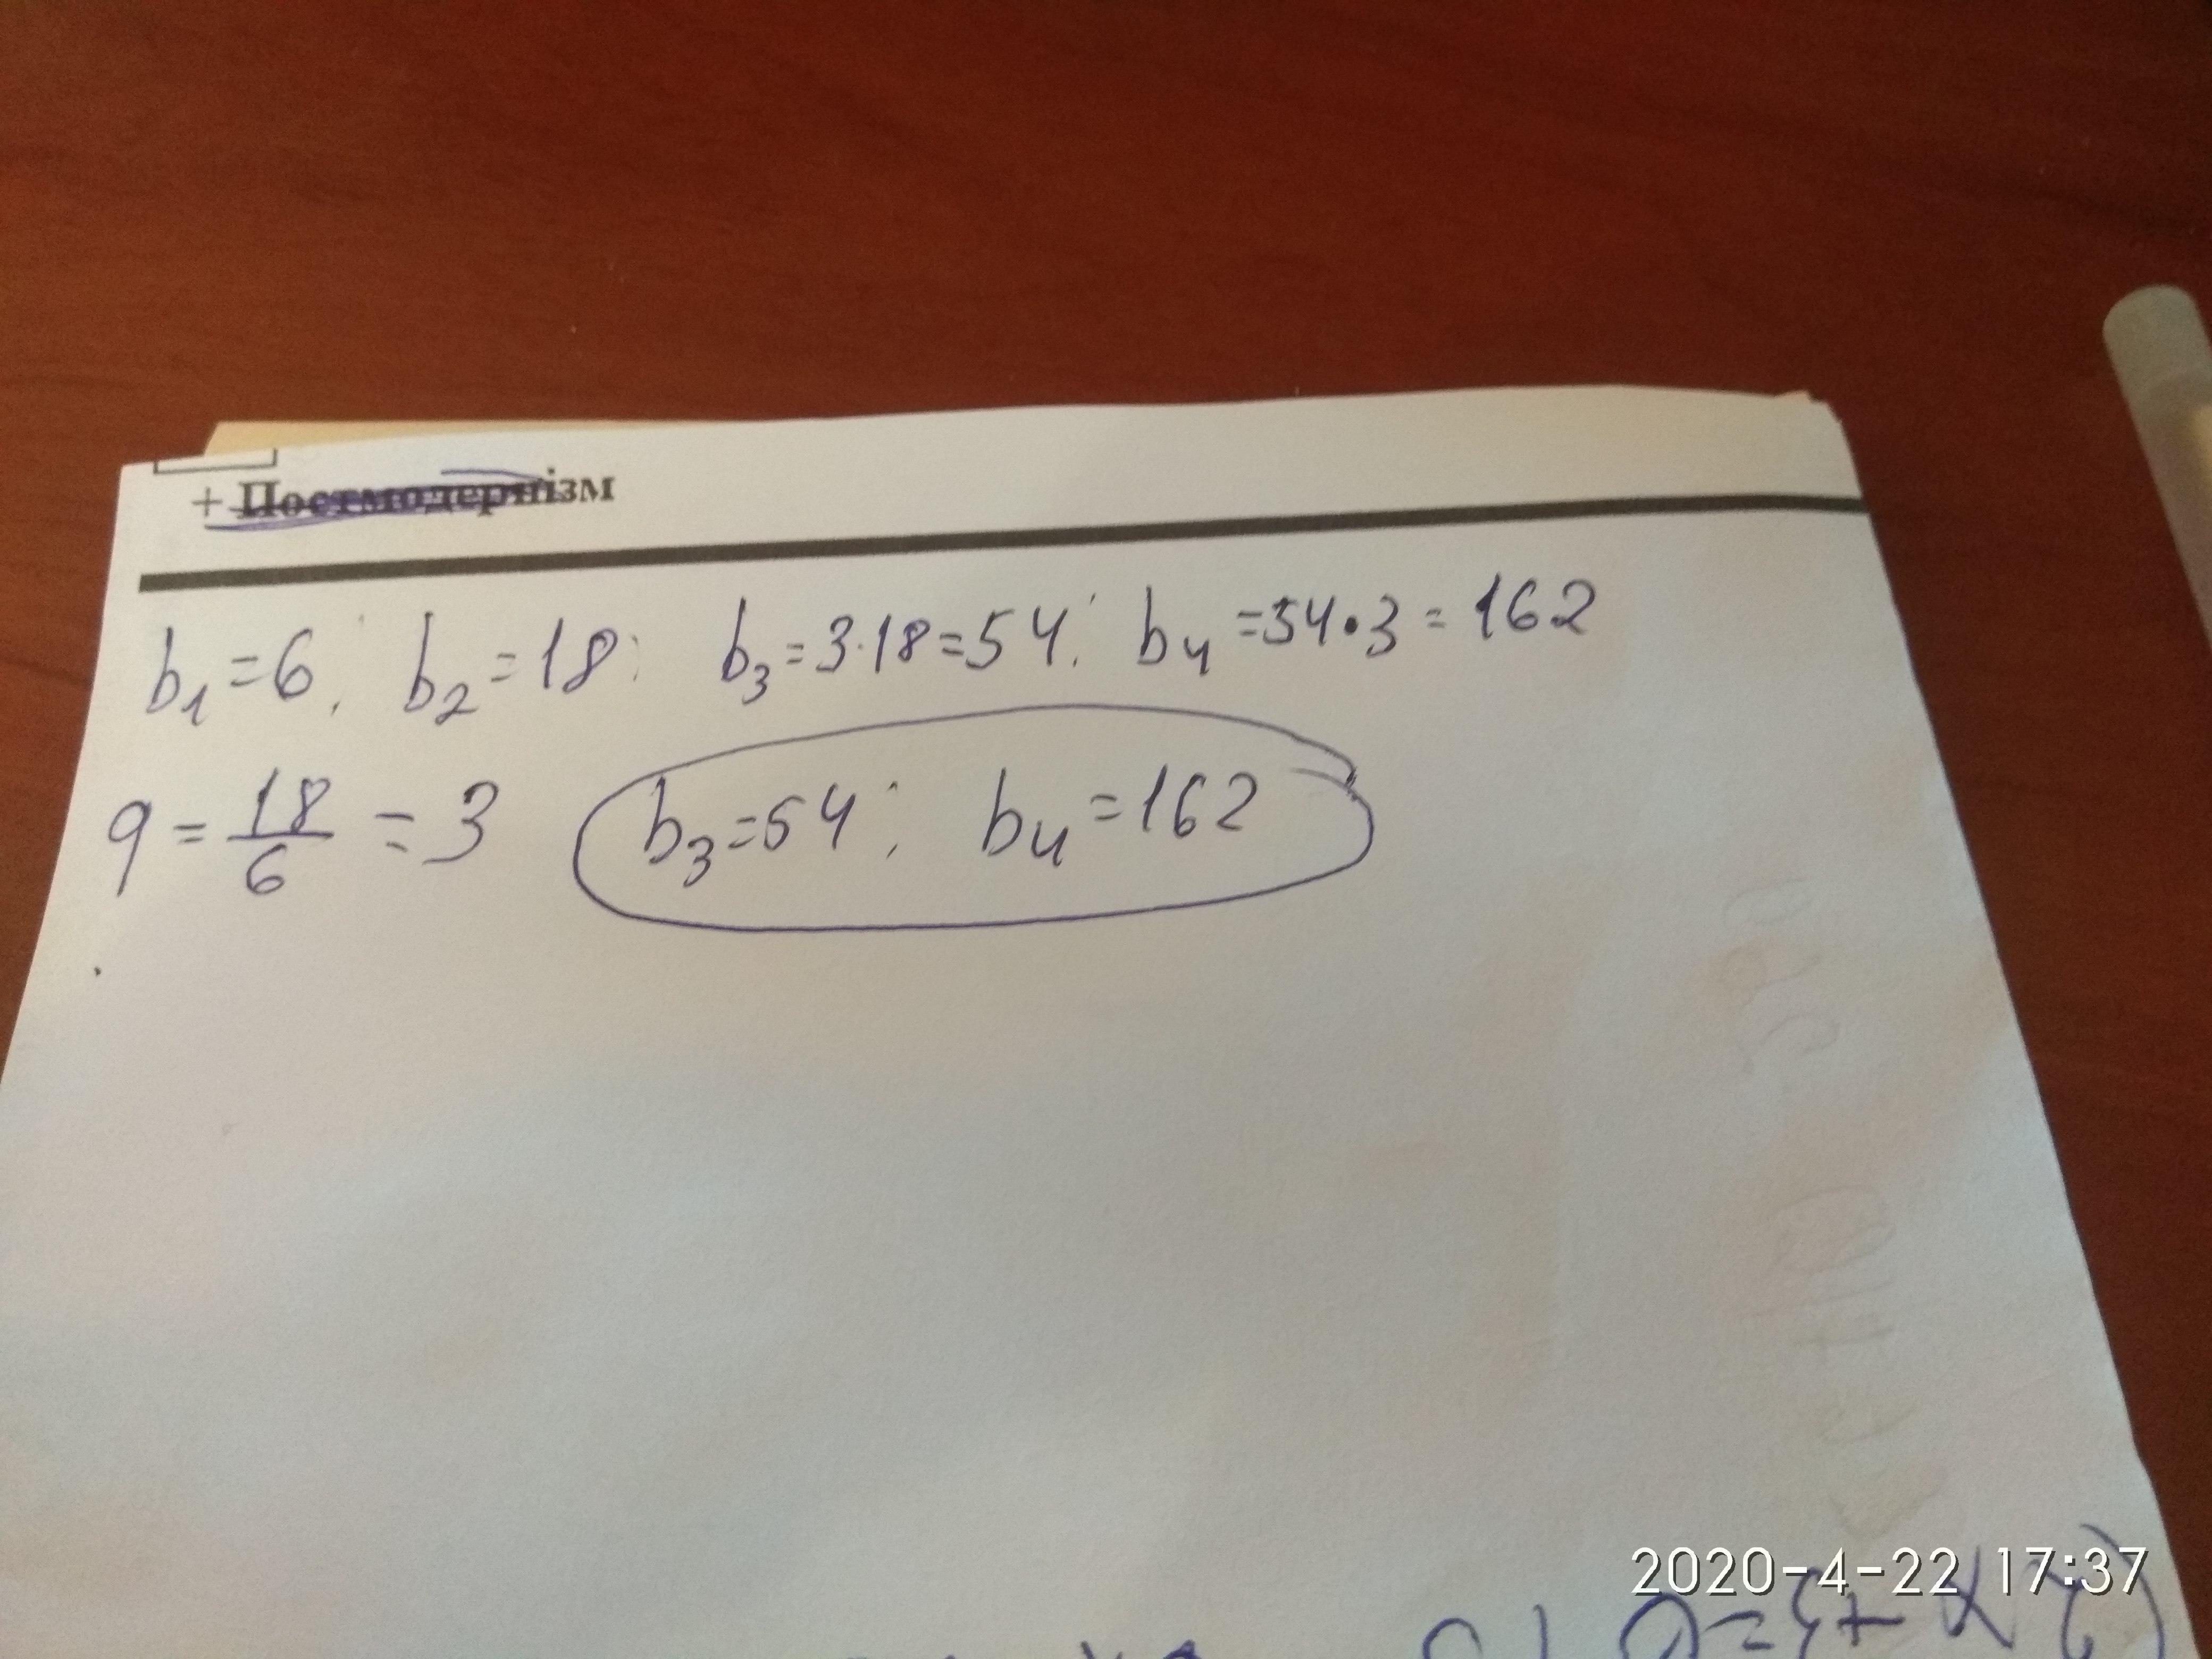 + Постмодернізм
b₁=6; b₂=18; b₃=3·18=54; b₄=54·3=162
q=18/6=3 b₃=54; b₄=162
2020-4-22 17:37